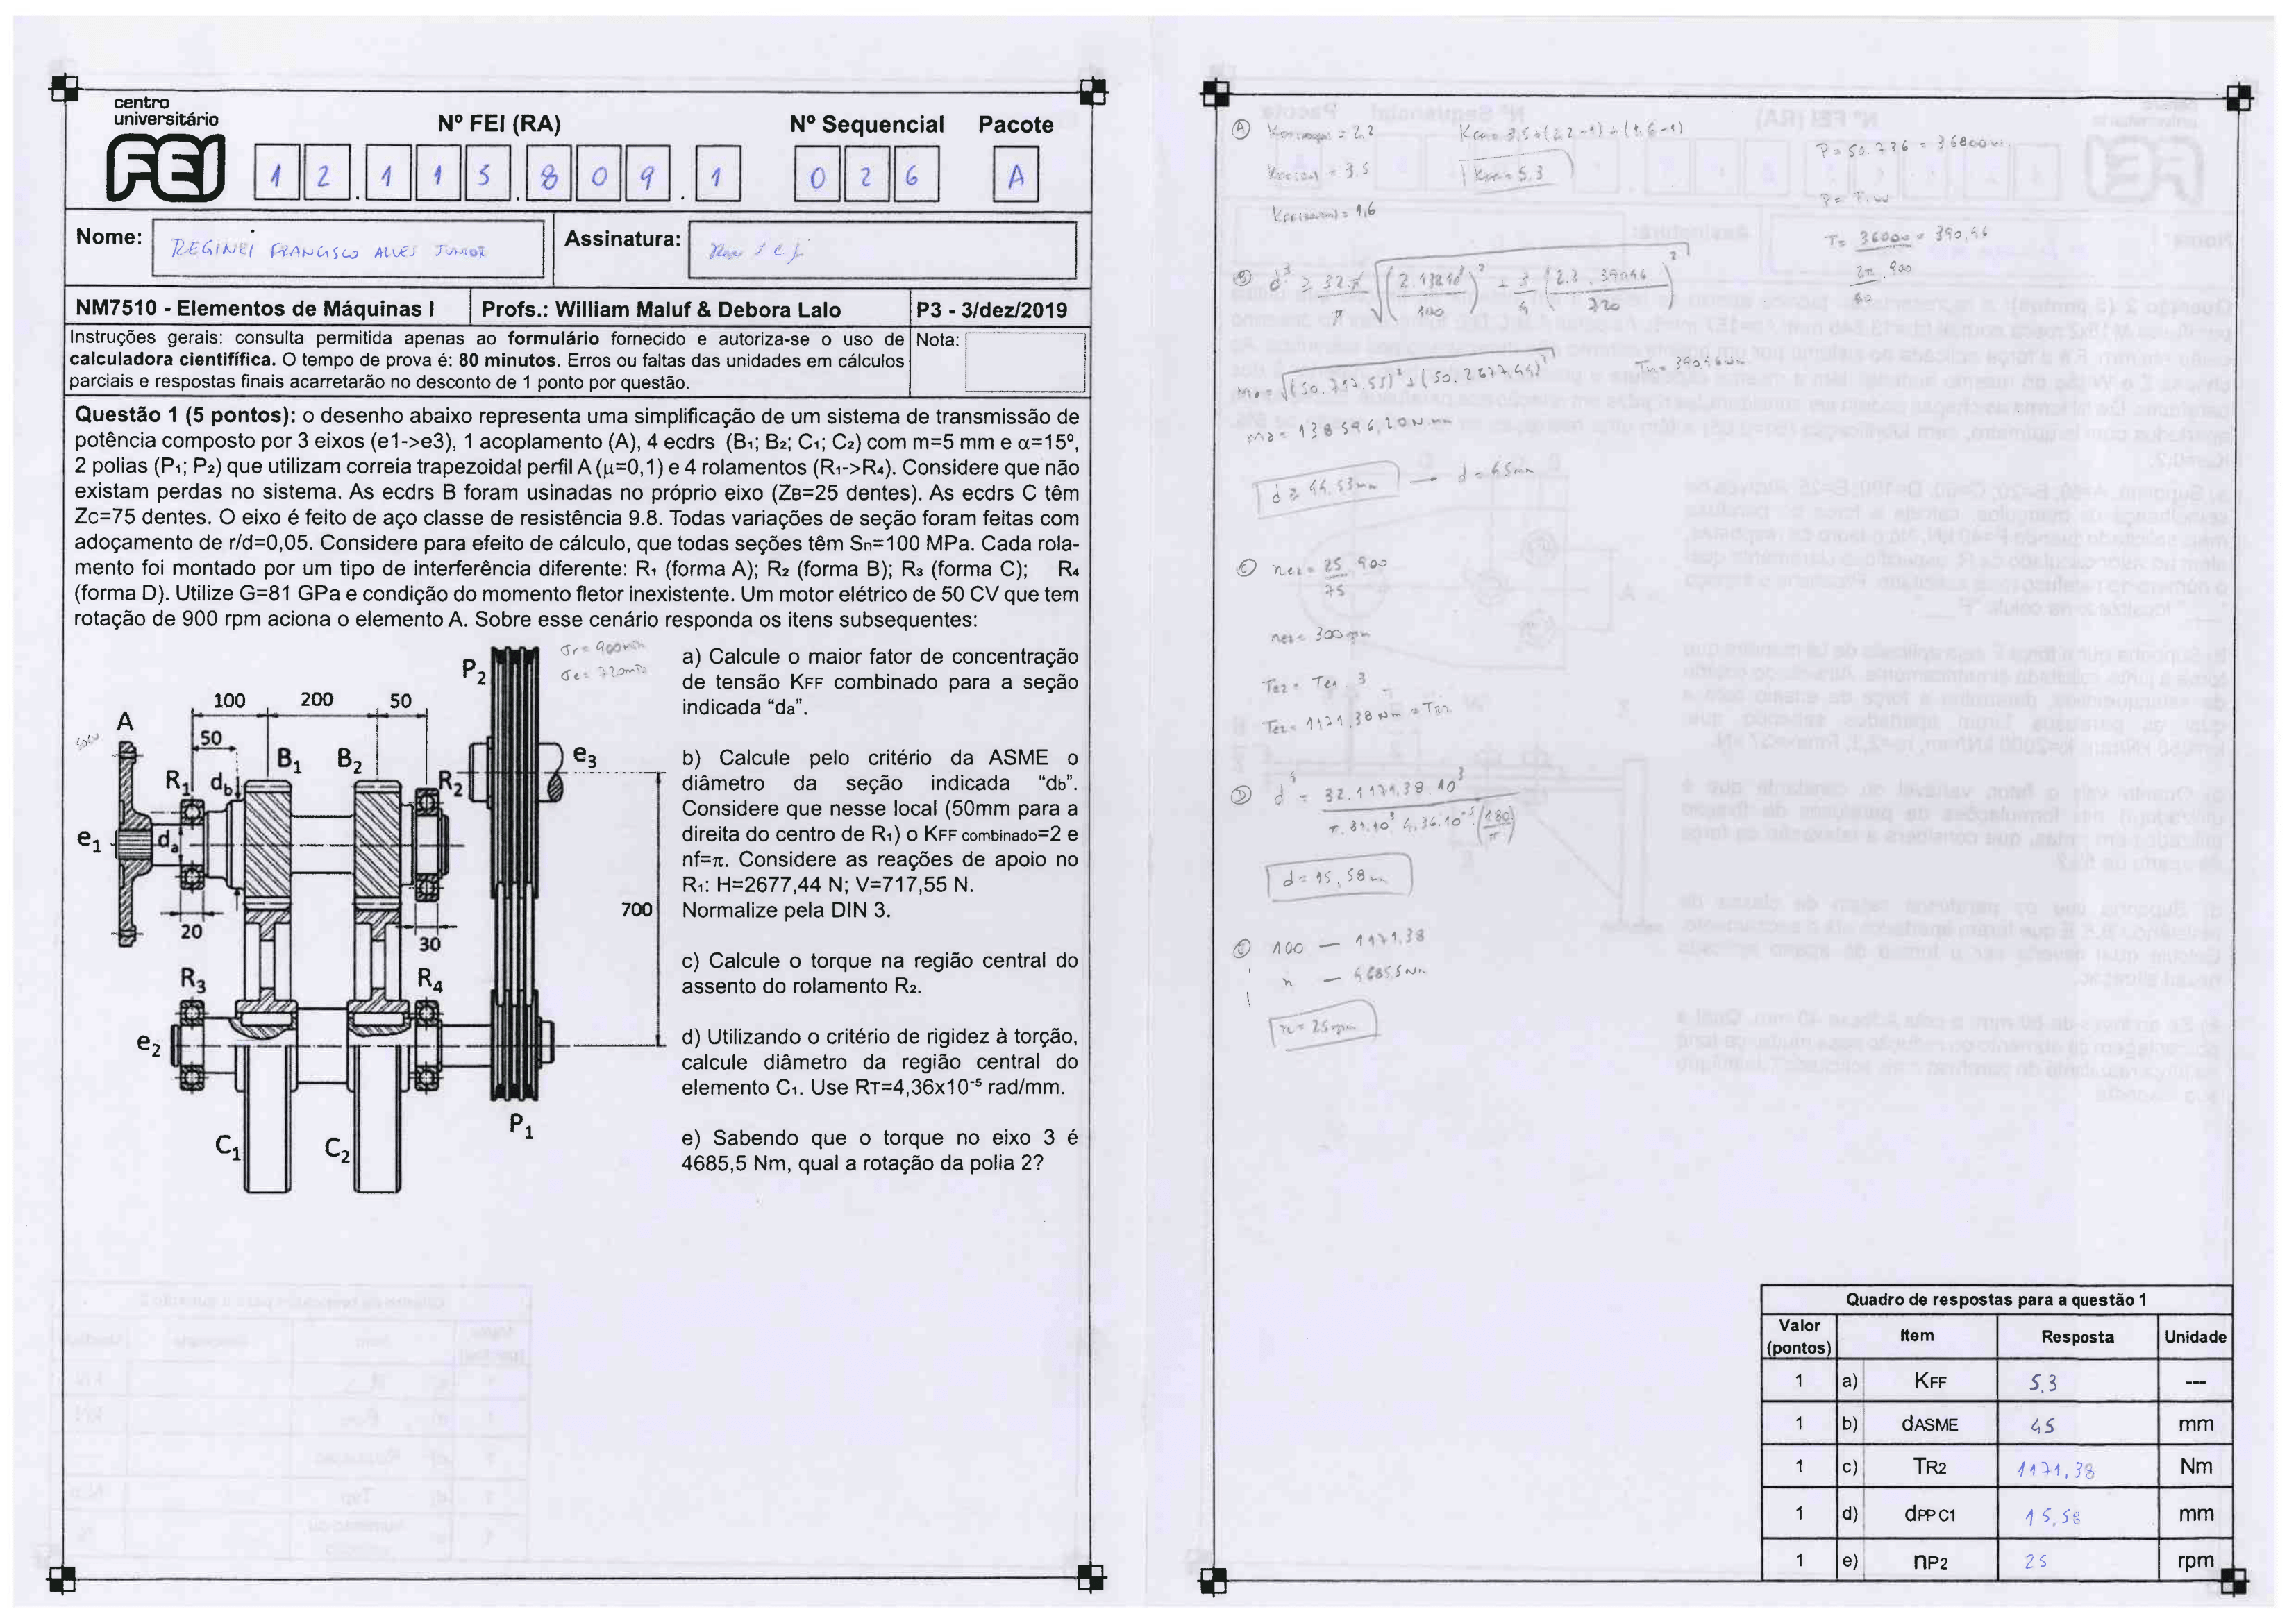 centro
universitário
FEI
Nº FEI (RA)
Nº Sequencial
Pacote
1 2 . 1 1 5 . 8 0 9 . 1
0 2 6
A
Nome:
REGINEI FRANCISCO ALVES JUNIOR
Assinatura:
NM7510 - Elementos de Máquinas I
Profs.: William Maluf & Debora Lalo
P3 - 3/dez/2019
Instruções gerais: consulta permitida apenas ao formulário fornecido e autoriza-se o uso de
calculadora cientiffica. O tempo de prova é: 80 minutos. Erros ou faltas das unidades em cálculos
parciais e respostas finais acarretarão no desconto de 1 ponto por questão.
Nota:
Questão 1 (5 pontos): o desenho abaixo representa uma simplificação de um sistema de transmissão de
potência composto por 3 eixos (e1->e3), 1 acoplamento (A), 4 ecdrs (B1; B2; C1; C2) com m=5 mm e α=15º,
2 polias (P1; P2) que utilizam correia trapezoidal perfil A (μ=0,1) e 4 rolamentos (R1->R4). Considere que não
existam perdas no sistema. As ecdrs B foram usinadas no próprio eixo (ZB=25 dentes). As ecdrs C têm
Zc=75 dentes. O eixo é feito de aço classe de resistência 9.8. Todas variações de seção foram feitas com
adoçamento de r/d=0,05. Considere para efeito de cálculo, que todas seções têm Sn=100 MPa. Cada rola-
mento foi montado por um tipo de interferência diferente: R1 (forma A); R2 (forma B); R3 (forma C); R4
(forma D). Utilize G=81 GPa e condição do momento fletor inexistente. Um motor elétrico de 50 CV que tem
rotação de 900 rpm aciona o elemento A. Sobre esse cenário responda os itens subsequentes:
σr = 900MPa
σe = 720MPa
P2
100 200 50
A
50
50cv
B1 B2
e3
R1 db
R2
e1
da
700
20
30
R3
R4
e2
P1
C1
C2
a) Calcule o maior fator de concentração
de tensão KFF combinado para a seção
indicada “da”.
b) Calcule pelo critério da ASME o
diâmetro da seção indicada “db”.
Considere que nesse local (50mm para a
direita do centro de R1) o KFF combinado=2 e
nf=π. Considere as reações de apoio no
R1: H=2677,44 N; V=717,55 N.
Normalize pela DIN 3.
c) Calcule o torque na região central do
assento do rolamento R2.
d) Utilizando o critério de rigidez à torção,
calcule diâmetro da região central do
elemento C1. Use RT=4,36x10⁻⁵ rad/mm.
e) Sabendo que o torque no eixo 3 é
4685,5 Nm, qual a rotação da polia 2?
A
= 2,2
KFF = 3,5 + (2,2 -1) + (1,6 -1)
= 3,5
KFF = 5,3
= 1,6
P = 50.736 = 36800W
P = T.ω
T = 36800 = 390,46
2π . 900
60
B
Ma = √(50.717,55)² + (50.2677,44)²
Ma = 138596,20 N mm
d ≥ 44,53mm → d = 45mm
C
ne2 = 25 . 900
75
ne2 = 300rpm
Te2 = Te1 . 3
Te2 = 1171,38 Nm = TR2
D
d⁴ = 32.1171,38.10³
π.81.10³.4,36.10⁻⁵.(180/π)
d = 15,58mm
E
100 — 1171,38
n — 4685,5 Nm
n = 25rpm
Quadro de respostas para a questão 1
Valor (pontos) Item Resposta Unidade
1 a) KFF 5,3 ---
1 b) dASME 45 mm
1 c) TR2 1171,38 Nm
1 d) dPP C1 15,58 mm
1 e) nP2 25 rpm